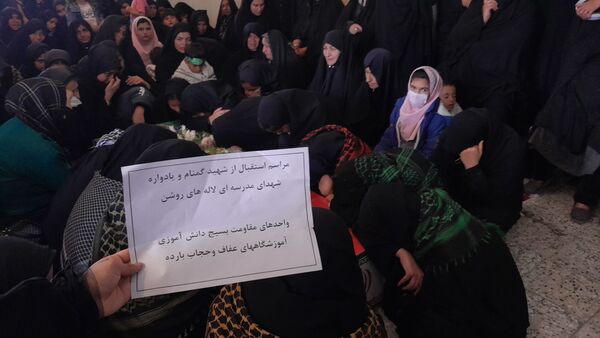 مراسم استقبال از شهید گمنام و یادواره
شهدای مدرسه ای لاله های روشن
واحدهای مقاومت بسیج دانش آموزی
آموزشگاههای عفاف وحجاب بارده